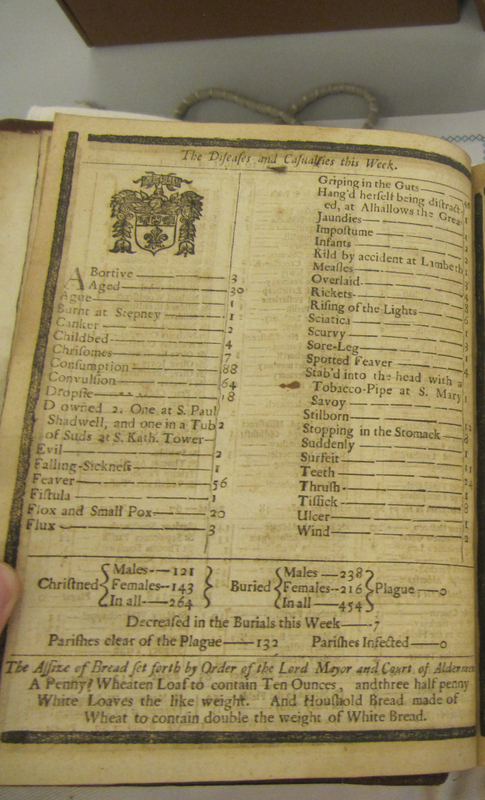 The Diseases and Casualties this Week.
Abortive 3
Aged 30
Ague 1
Burnt at Stepney 1
Canker 2
Childbed 4
Chrisomes 7
Consumption 88
Convulsion 64
Dropsie 18
Drowned 2. One at S. Paul
Shadwell, and one in a Tub 2
of Suds at S. Kath. Tower
Evil 2
Falling-Sickness 1
Feaver 56
Fistula 1
Flox and Small Pox 20
Flux 3
Griping in the Guts
Hang'd herself being distract-
ed, at Alhallows the Grea
Jaundies
Impostume
Infants
Kild by accident at Lambeth
Measles
Overlaid
Rickets
Rising of the Lights
Sciatica
Scurvy
Sore-Leg
Spotted Feaver
Stab'd into the head with a
Tobacco-Pipe at S. Mary
Savoy
Stilborn
Stopping in the Stomack
Suddenly
Surfeit
Teeth
Thrush
Tissick
Ulcer
Wind
Christned Males 121 Females 143 In all 264 Buried Males 238 Females 216 In all 454 Plague 0
Decreased in the Burials this Week 7
Parishes clear of the Plague 132 Parishes Infected 0
The Assize of Bread set forth by Order of the Lord Mayor and Court of Aldermen
A Penny Wheaten Loaf to contain Ten Ounces, and three half penny
White Loaves the like weight. And Houshold Bread made of
Wheat to contain double the weight of White Bread.